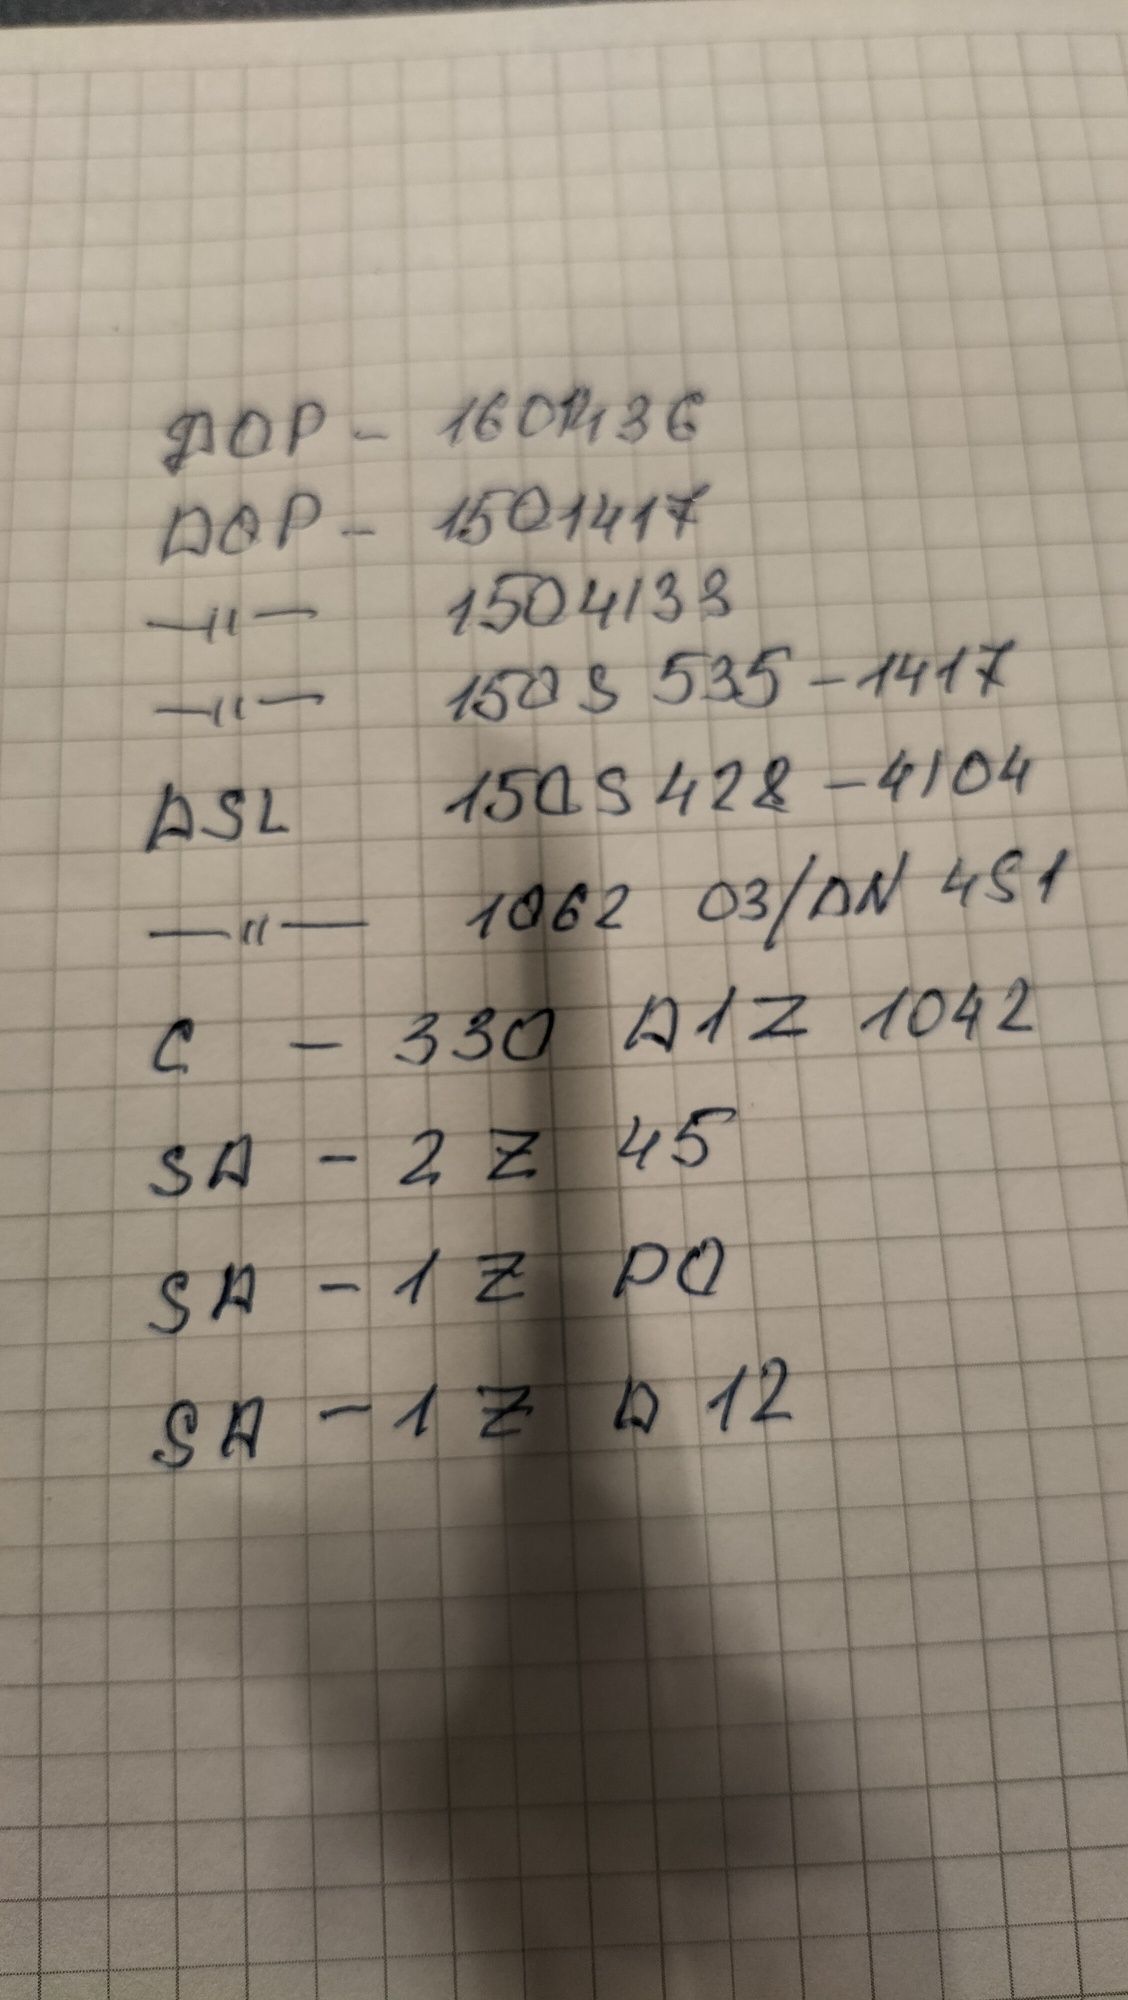 DOP - 1601436
DOP - 1501417
—"— 1504133
—"— 150S 535-1417
DSL 150S428-4104
—"— 1062 03/DN 4S1
C - 330 D1Z 1042
SA - 2Z 45
SA - 1Z DO
SA - 1Z D12